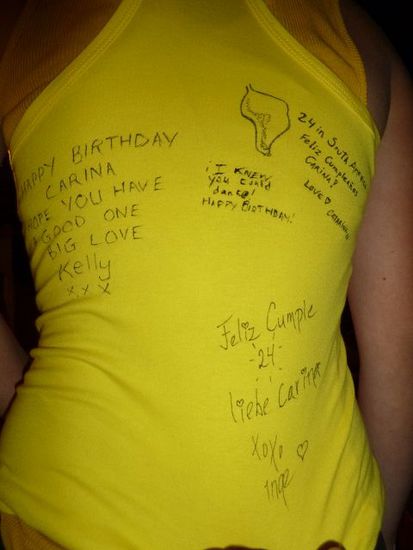 HAPPY BIRTHDAY
CARINA
HOPE YOU HAVE
A GOOD ONE
BIG LOVE
Kelly
x x x
¡I KNEW
you could
dance!
HAPPY BIRTHDAY!
24 in South America
Feliz Cumpleaños
CARINA!
LOVE
Feliz Cumple
-24-
liebe Carina
XOXO
Inge